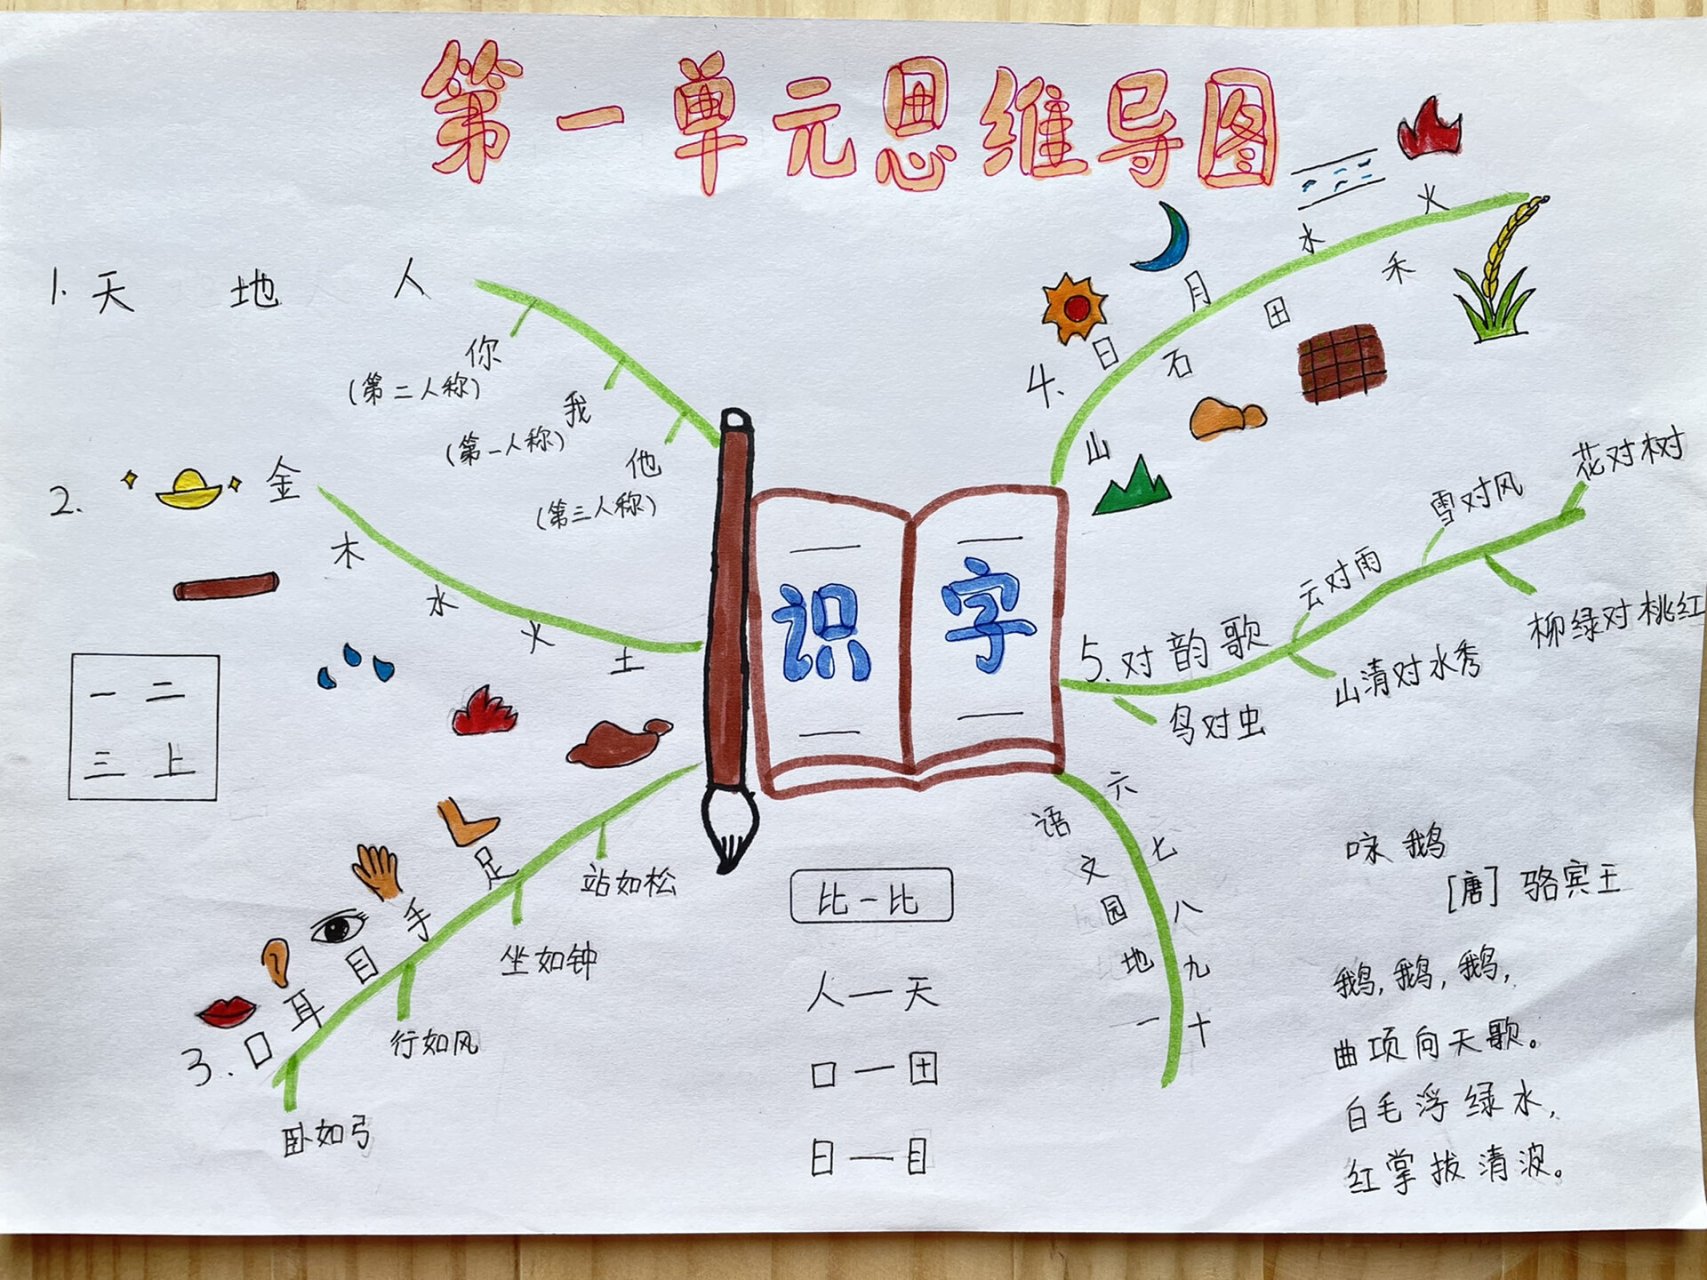 第一单元思维导图
识字
1. 天 地 人
你
(第二人称)
我
(第一人称)
他
(第三人称)
2. 金 木 水 火 土
一 二
三 上
3. 口 耳 目 手 足
站如松
坐如钟
行如风
卧如弓
4. 山 日 石 月 田 水 禾 火
5. 对韵歌
云对雨
雪对风
花对树
柳绿对桃红
山清对水秀
鸟对虫
语文园地一
六七八九十
比一比
人一天
口一田
日一目
咏鹅
[唐] 骆宾王
鹅,鹅,鹅,
曲项向天歌。
白毛浮绿水,
红掌拔清波。